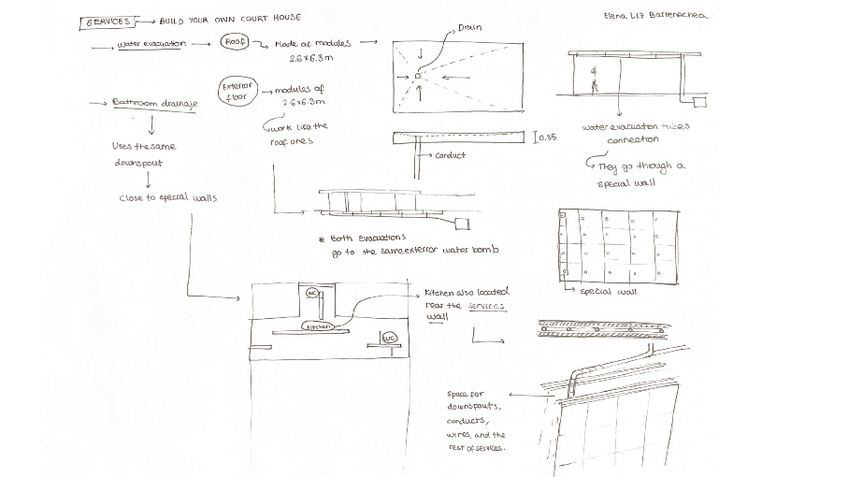 SERVICES → BUILD YOUR OWN COURT HOUSE
Elena Liz Barrenechea
water evacuation → Roof → Made of modules →
2.6x6.3m
Drain
Exterior
floor
→ modules of
2.6x6.3m
work like the
roof ones
Bathroom drainaje
Uses the same
downspout
Close to special walls
0.35
Conduct
water evacuation tubes
connection
They go through a
special wall
* Both evacuations
go to the same exterior water bomb
special wall
WC
Kitchen
WC
Kitchen also located
near the services
wall
Space for
downspouts,
conducts,
wires, and the
rest of services.